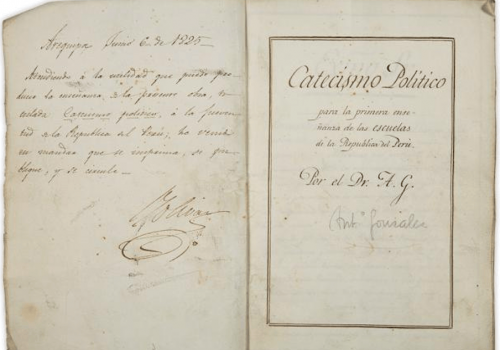 Arequipa Junio 6. de 1825—
Atendiendo à la utilidad que puede pro-
ducir la enseñanza de la presente obra, ti-
tulada Catecismo politico, à la juven-
tud de la Republica del Perù; he venido
en mandar que se imprima, se pu-
blique, y se circule—
Bolivar
Catecismo Politico
para la primera ense-
ñanza de las escuelas
de la Republica del Perú.
Por el Dr. A. G.
(Antº Gonzalez